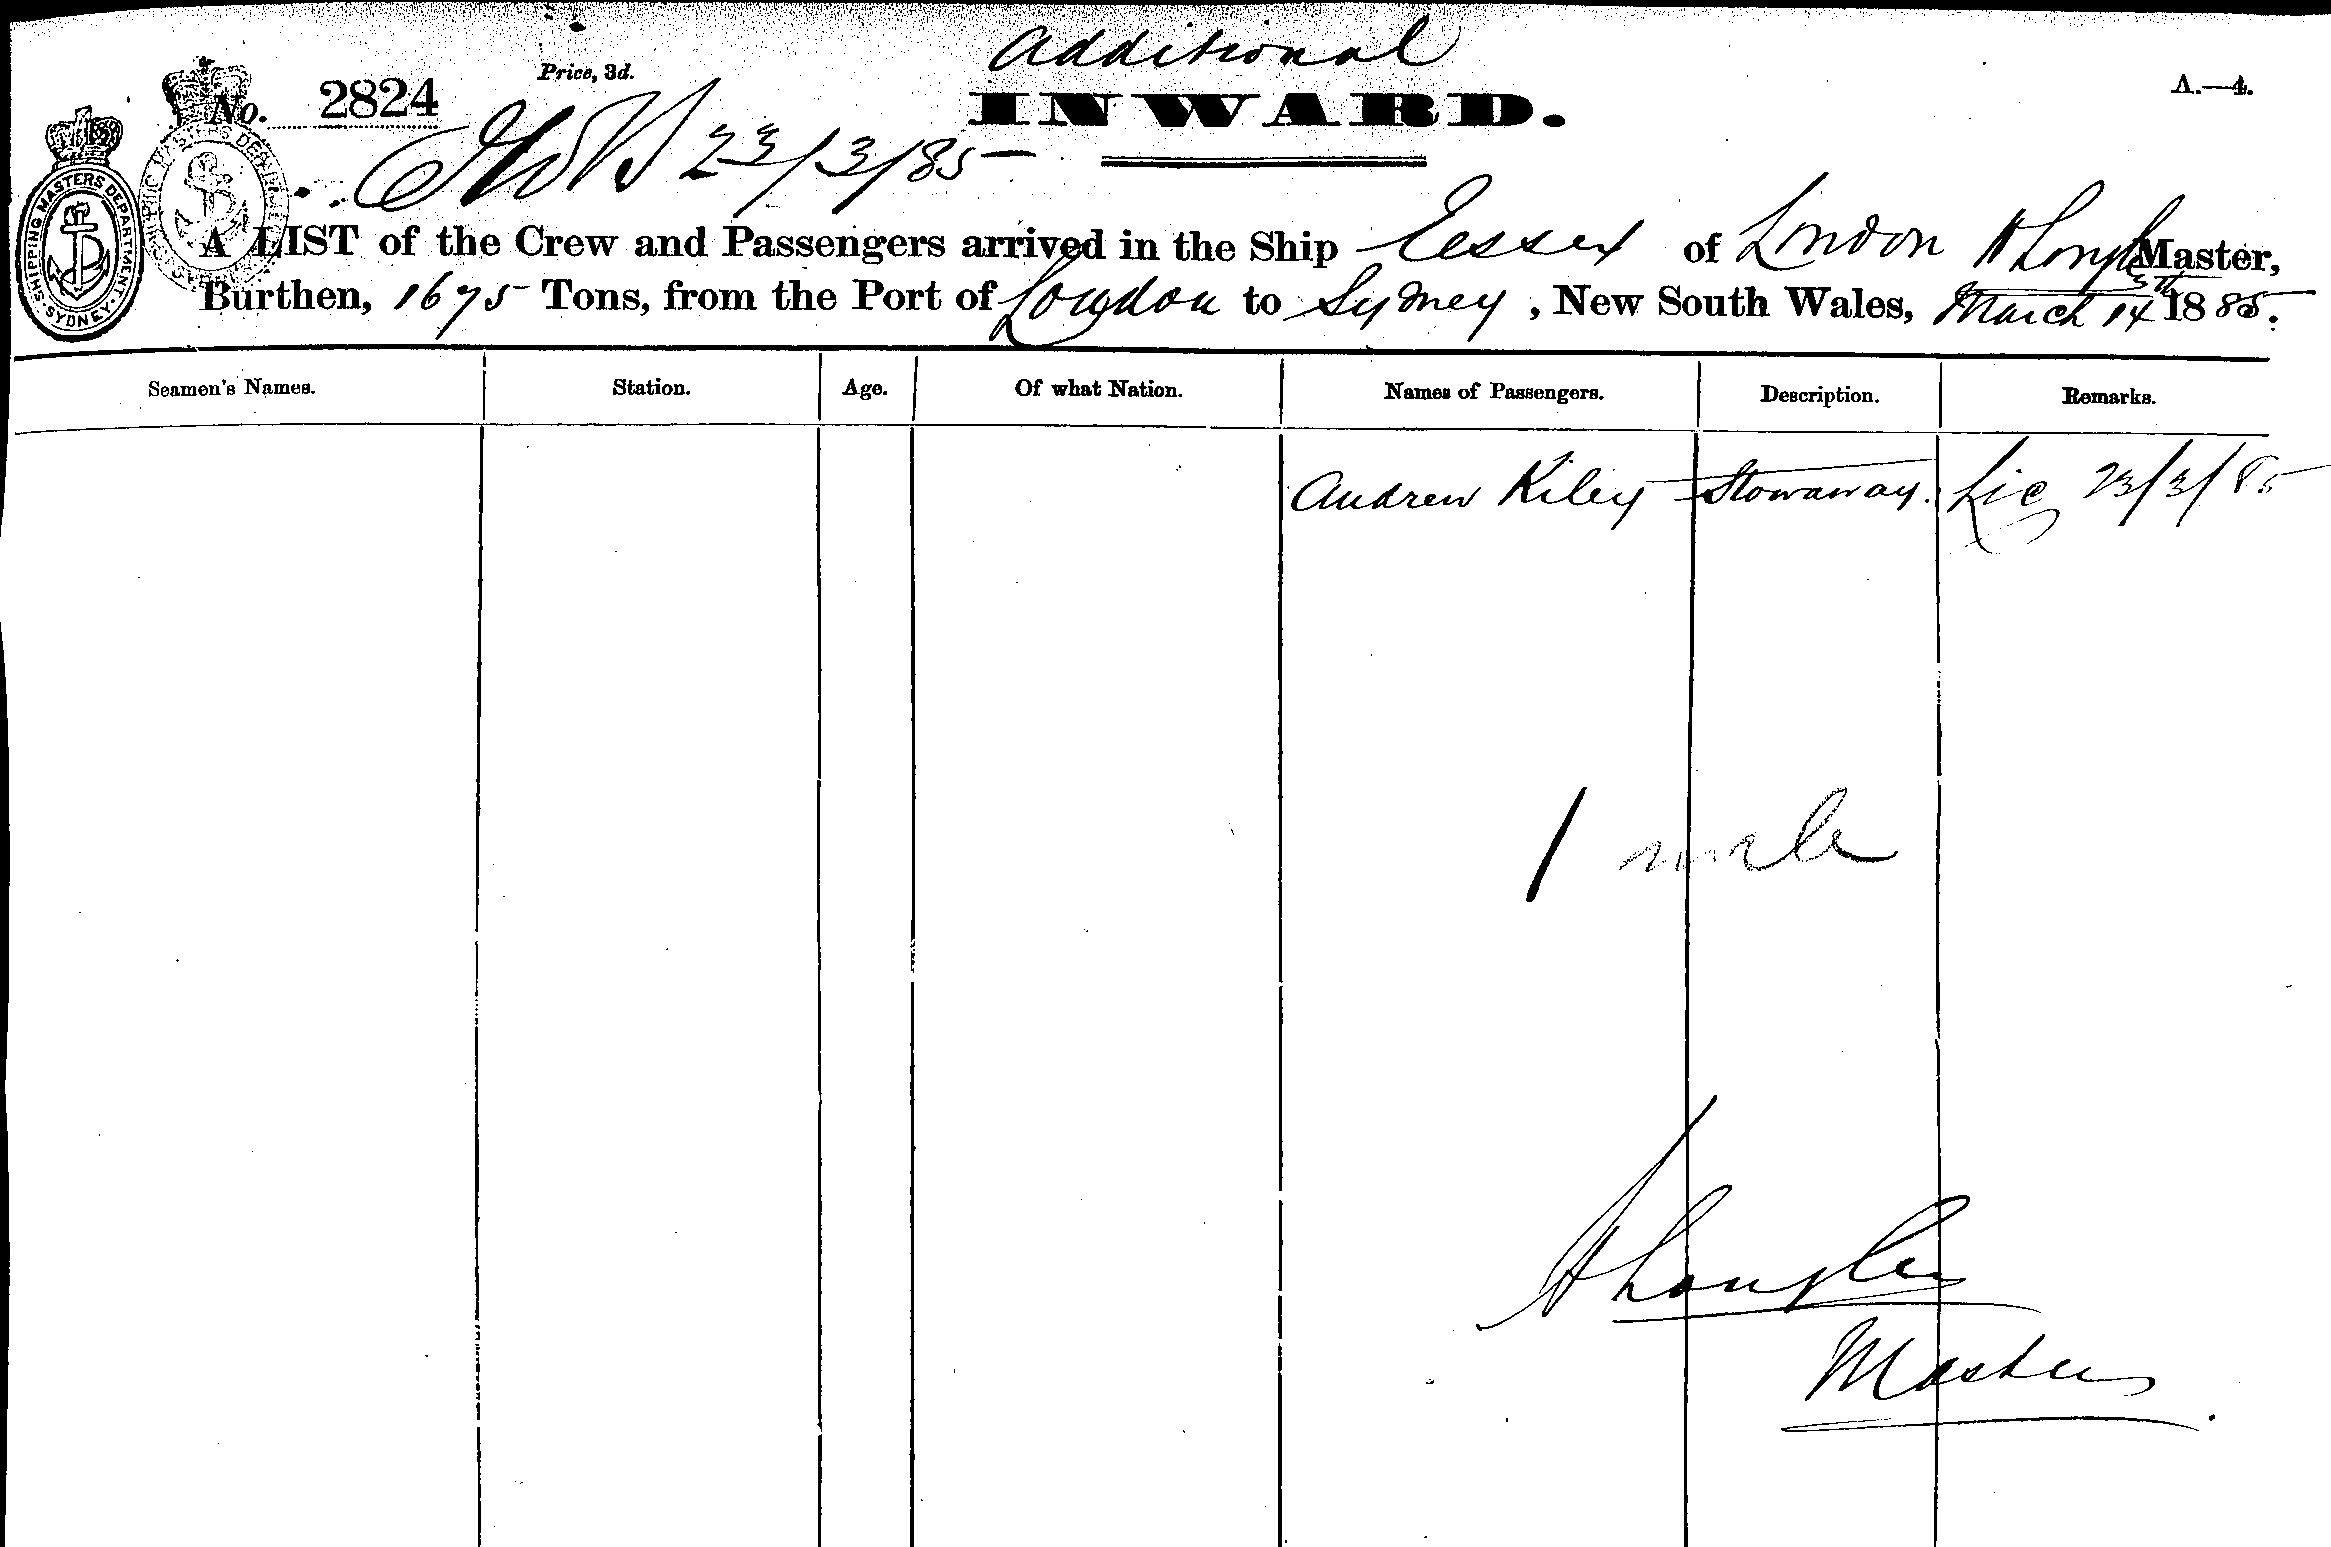 Additional
No. 2824
Price, 3d.
INWARD.
A.—4.
23/3/85
SHIPPING MASTERS DEPARTMENT. SYDNEY.
A LIST of the Crew and Passengers arrived in the Ship Essex of London Master,
Burthen, 1675 Tons, from the Port of London to Sydney, New South Wales, March 1885.
Seamen's Names. Station. Age. Of what Nation. Names of Passengers. Description. Remarks.
Andrew Kiley Stowaway. Lic 23/3/85
1 male
Master